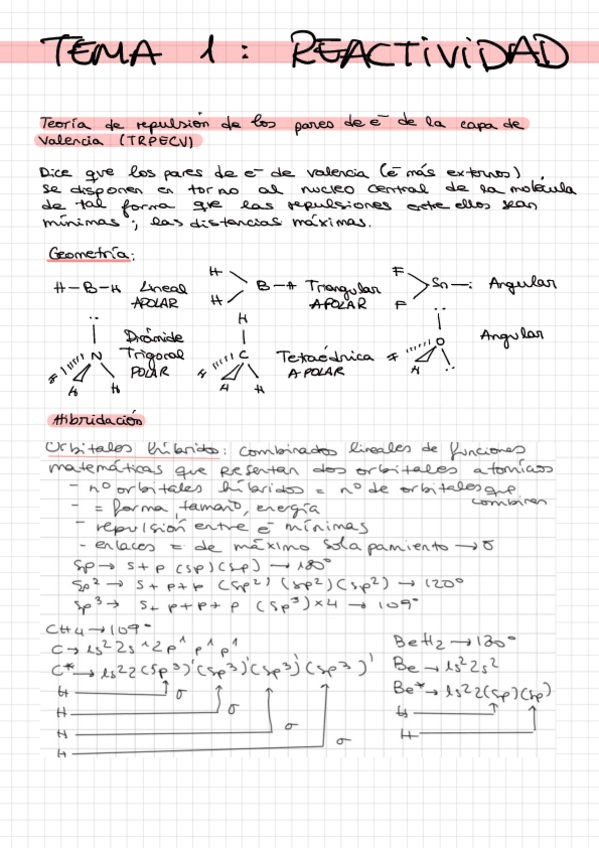 TEMA 1: REACTIVIDAD
Teoría de repulsión de los pares de e⁻ de la capa de
valencia (TRPECV)
Dice que los pares de e⁻ de valencia (e⁻ más externos)
se disponen en torno al nucleo central de la molécula
de tal forma que las repulsiones entre ellos sean
mínimas; las distancias máximas.
Geometría:
H-B-H Lineal APOLAR
H H B-H Triangular APOLAR
F F Sn-: Angular
N H H H Pirámide Trigonal POLAR
H C H H H Tetraédrica APOLAR
O H H Angular
Hibridación
Orbitales híbridos: combinados lineales de funciones
matemáticas que presentan dos orbitales atomicos
- nº orbitales híbridos = nº de orbitales que combinan
- = forma, tamaño, energía
- repulsión entre e⁻ mínimas
- enlaces = de máximo solapamiento → σ
sp → s+p (sp)(sp) → 180º
sp² → s+p+p (sp²)(sp²)(sp²) → 120º
sp³ → s+p+p+p (sp³)x4 → 109º
CH4 → 109º
C → 1s²2s^2 2p¹p¹p¹
C* → 1s²2(sp³)¹(sp³)¹(sp³)¹(sp³)¹
H σ
H σ
H σ
H σ
BeH2 → 180º
Be → 1s²2s²
Be* → 1s²2(sp)(sp)
H
H